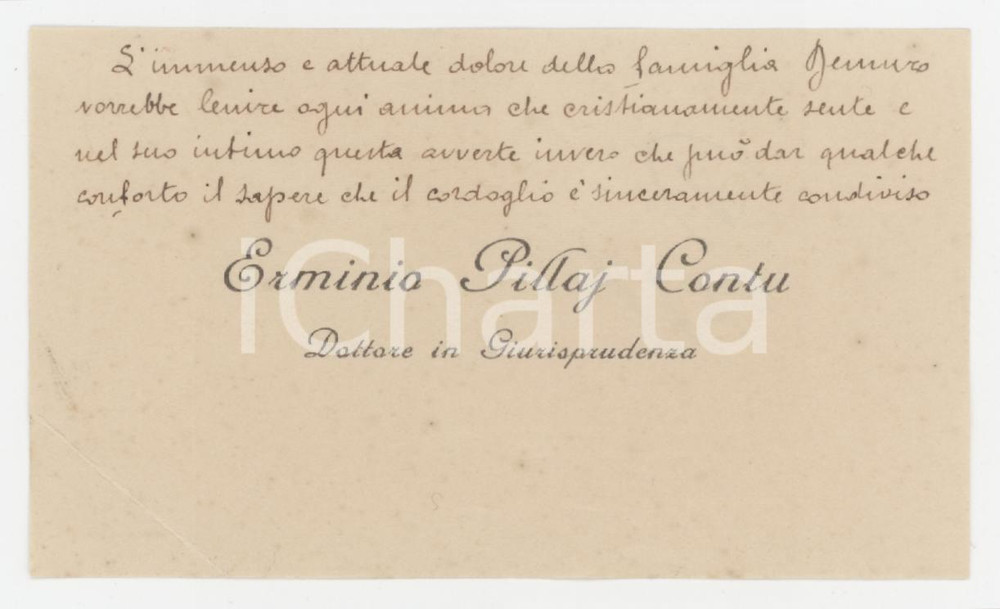 L'immenso e attuale dolore della famiglia Demuro
vorrebbe lenire ogni animo che cristianamente sente e
nel suo intimo questa avverte invero che può dar qualche
conforto il sapere che il cordoglio è sinceramente condiviso
Erminio Pillaj Contu
iCharta
Dottore in Giurisprudenza